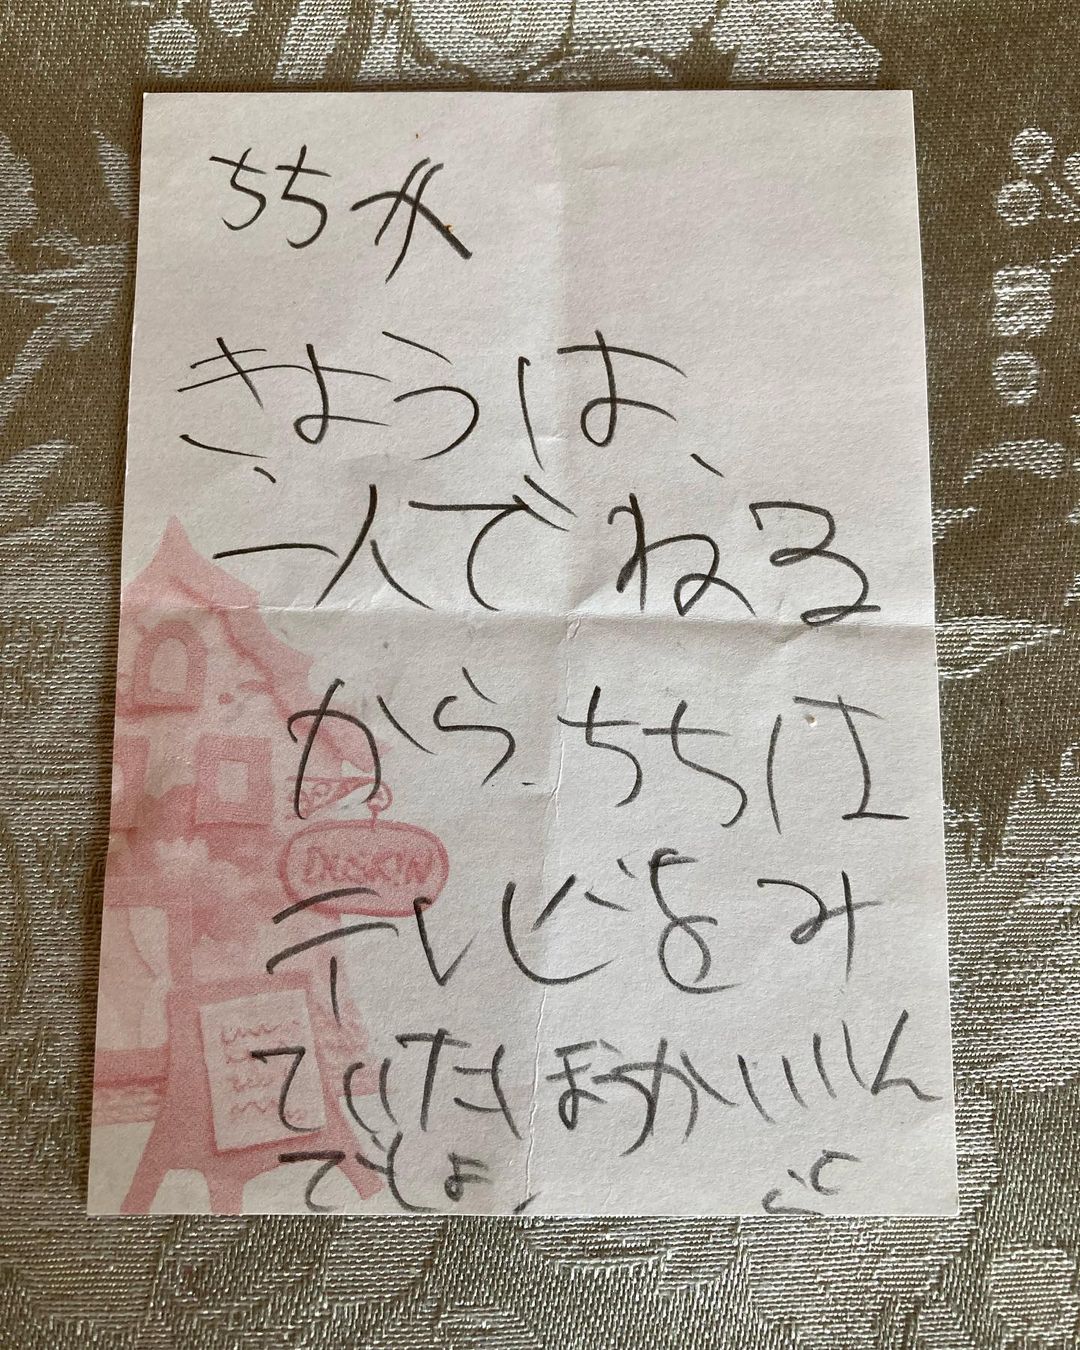 ちちへ
きょうは、
一人でねる
から ちちは
テレビをみ
ていたほうがいいん
でしょ、
DUSKIN